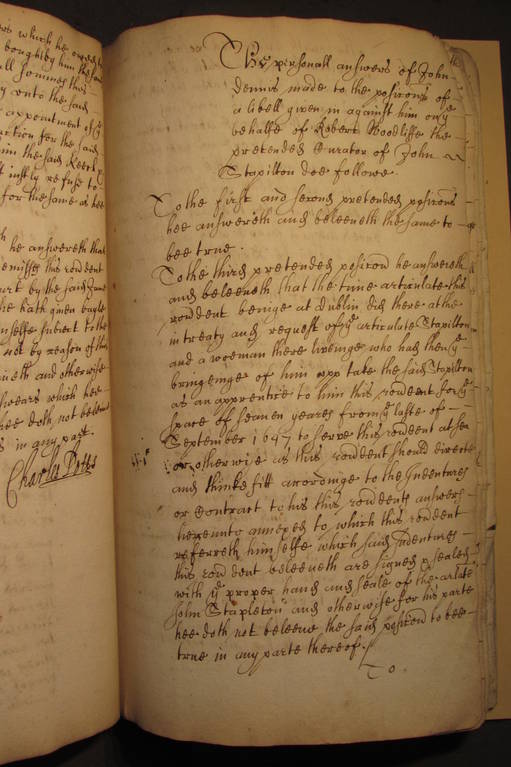 ers which he
bought by him the said
all Somme this
y vnto the said
appointment of ye
action for the said
him the said
t iustly refuse to
for the same as hee
h he answereth that
premisses this rondent
by the said
he hath giuen
himselfe subiect to the
not by reason of this
and otherwise
which hee
hee doth not beleeue
s in any part.
Charles Potts
The personall answers of John
Dennis made to the positions of
a libell giuen in against him on ye
behalfe of Robert Woodliffe the
pretended Curator of John
Stapilton doe followe
To the first and second pretended positions
hee answereth and beleeueth the same to
bee true.
To the third pretended position he answereth
and beleeueth that the time articulate this
rondent beinge at Dublin did there at the
intreaty and request of ye articulate Stapilton
and a woeman there liuinge who had then ye
bringinge of him vpp take the said Stapilton
as an apprentice to him this rondent for ye
space of seauen yeares from ye laste of
September 1647 to serve this rondent at sea
or otherwise as this rondent should directe
and thinke fitt accordinge to the Indentures
or Contract to his this rondents answers
hereunto annexed to which this rondent
referreth himselfe which said Indentures
this rondent beleeueth are signed & sealed
with ye proper hand and seale of the arlate
John Stapleton and otherwise for his parte
hee doth not beleeue the said position to bee
true in any parte thereof.
To